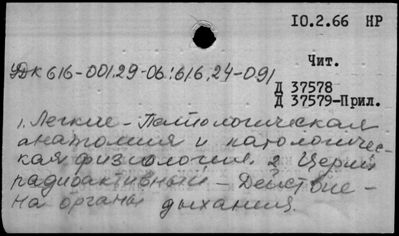 10.2.66 НР
Чит.
УДК 616-001.29-06:616.24-091
Д 37578
Д 37579-Прил.
1. Легкие - Патологическая
анатомия и патологичес-
кая физиология. 2 Церий
радиоактивный - Действие -
на органы дыхания.